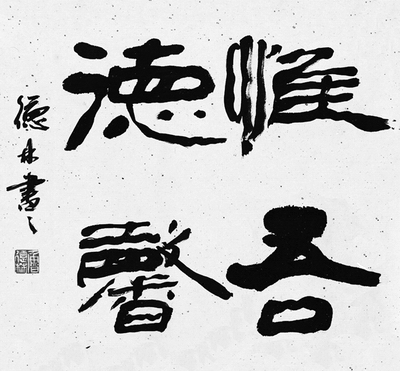 惟吾
德馨
德林書之